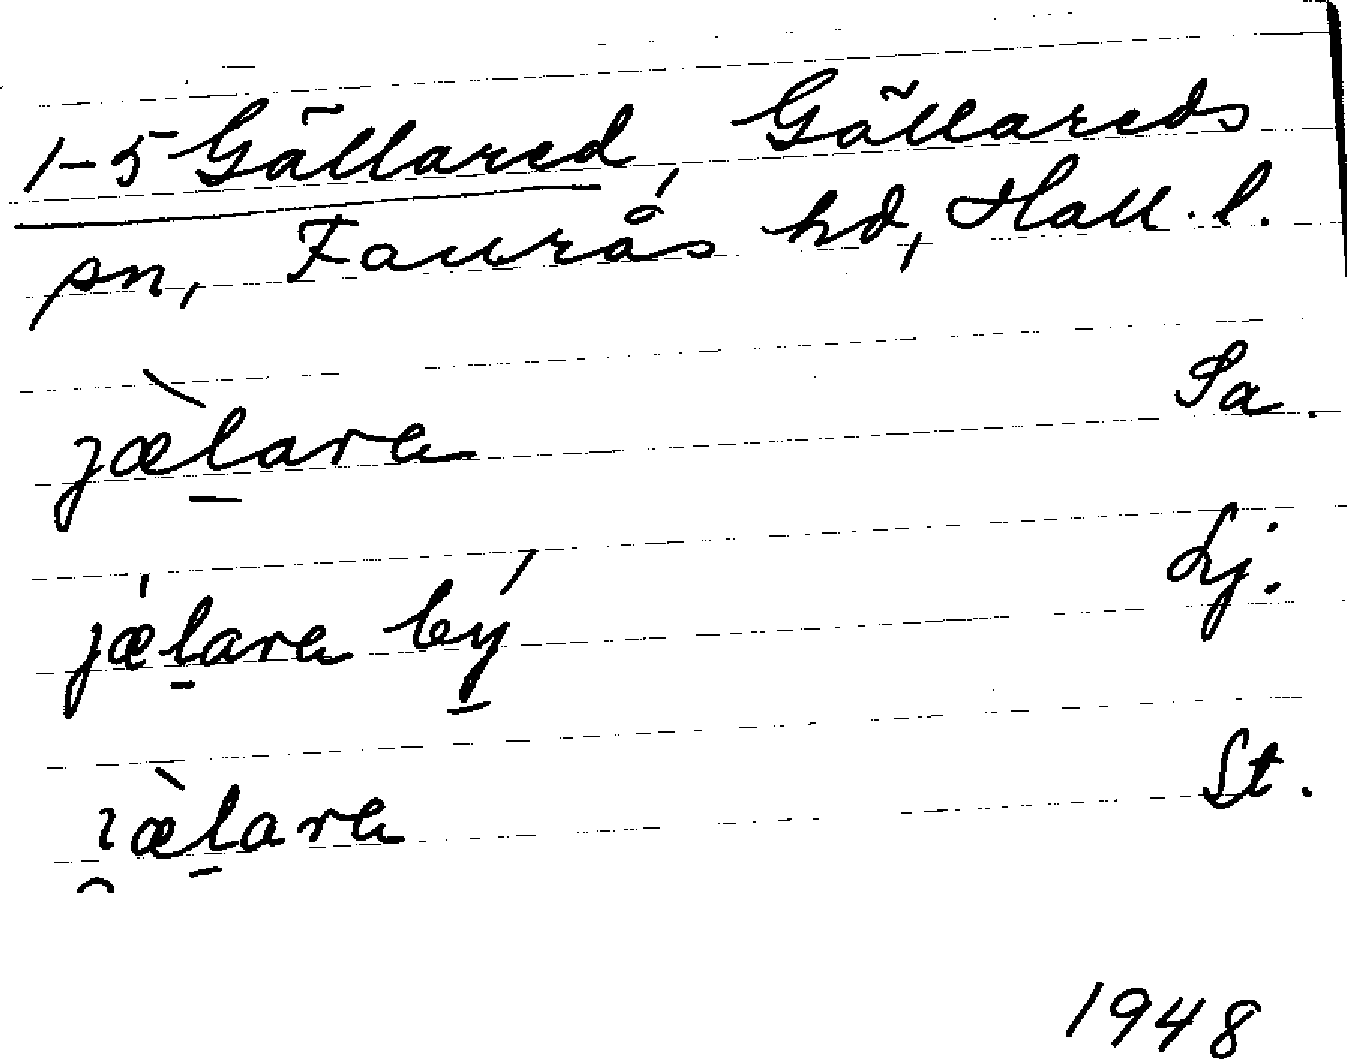 1-5 Gällared, Gällareds
sn, Faurås hd, Hall. l.
jæ̀l̠ara Sa.
jǽl̠ara bý̠ Lj.
ı̯æ̀l̠ara St.
1948